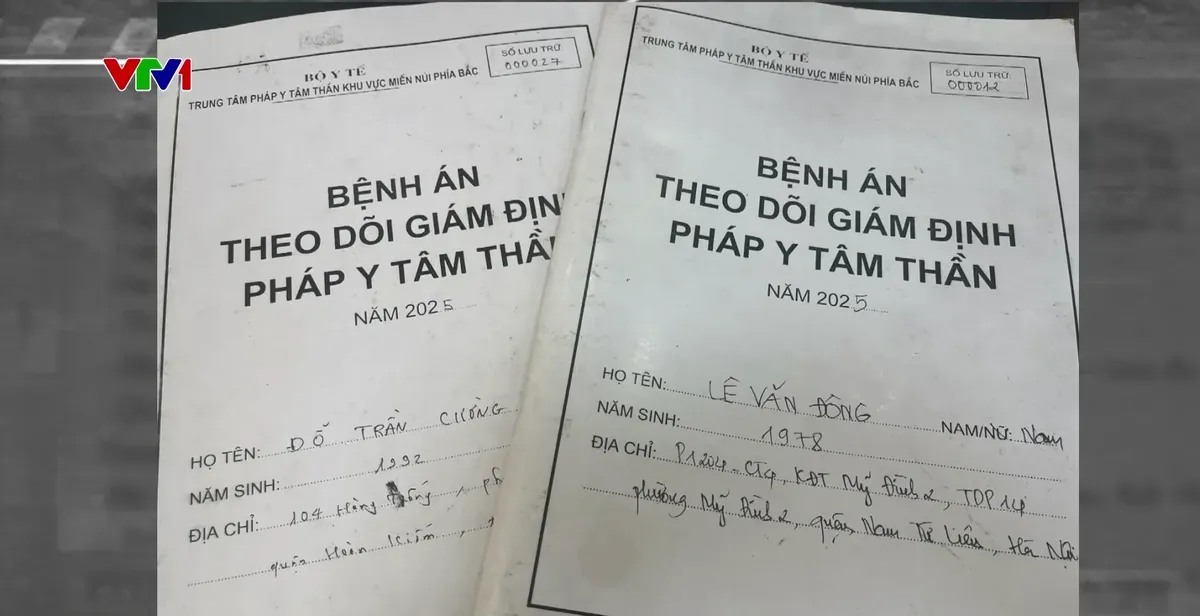 VTV1
BỘ Y TẾ
TRUNG TÂM PHÁP Y TÂM THẦN KHU VỰC MIỀN NÚI PHÍA BẮC
SỐ LƯU TRỮ:
000027
BỆNH ÁN
THEO DÕI GIÁM ĐỊN
PHÁP Y TÂM THẦ
NĂM 2025
HỌ TÊN: ĐỖ TRẦN CHÒNG
NĂM SINH: 1992
ĐỊA CHỈ: 104 Hàng Trống, ph
quận Hoàn Kiếm,
BỘ Y TẾ
TRUNG TÂM PHÁP Y TÂM THẦN KHU VỰC MIỀN NÚI PHÍA BẮC
SỐ LƯU TRỮ:
000012
BỆNH ÁN
THEO DÕI GIÁM ĐỊNH
PHÁP Y TÂM THẦN
NĂM 2025
HỌ TÊN: LÊ VĂN ĐÔNG NAM/NỮ: Nam
NĂM SINH: 1978
ĐỊA CHỈ: P1204-CT4, KĐT Mỹ Đình 2, TDP 14
phường Mỹ Đình 2, quận Nam Từ Liêm, Hà Nội